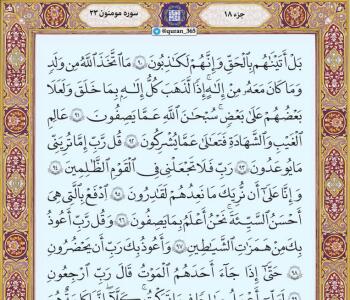 جزء ۱۸
@quran_365
سوره مومنون ۲۳
بَلْ أَتَيْنَٰهُم بِٱلْحَقِّ وَإِنَّهُمْ لَكَٰذِبُونَ ٩٠ مَا ٱتَّخَذَ ٱللَّهُ مِن وَلَدٍ
وَمَا كَانَ مَعَهُۥ مِنْ إِلَٰهٍ إِذًا لَّذَهَبَ كُلُّ إِلَٰهٍۭ بِمَا خَلَقَ وَلَعَلَا
بَعْضُهُمْ عَلَىٰ بَعْضٍ سُبْحَٰنَ ٱللَّهِ عَمَّا يَصِفُونَ ٩١ عَٰلِمِ
ٱلْغَيْبِ وَٱلشَّهَٰدَةِ فَتَعَٰلَىٰ عَمَّا يُشْرِكُونَ ٩٢ قُل رَّبِّ إِمَّا تُرِيَنِّي
مَا يُوعَدُونَ ٩٣ رَبِّ فَلَا تَجْعَلْنِي فِي ٱلْقَوْمِ ٱلظَّٰلِمِينَ ٩٤
وَإِنَّا عَلَىٰٓ أَن نُّرِيَكَ مَا نَعِدُهُمْ لَقَٰدِرُونَ ٩٥ ٱدْفَعْ بِٱلَّتِي هِيَ
أَحْسَنُ ٱلسَّيِّئَةَ نَحْنُ أَعْلَمُ بِمَا يَصِفُونَ ٩٦ وَقُل رَّبِّ أَعُوذُ
بِكَ مِنْ هَمَزَٰتِ ٱلشَّيَٰطِينِ ٩٧ وَأَعُوذُ بِكَ رَبِّ أَن يَحْضُرُونِ
٩٨ حَتَّىٰٓ إِذَا جَآءَ أَحَدَهُمُ ٱلْمَوْتُ قَالَ رَبِّ ٱرْجِعُونِ